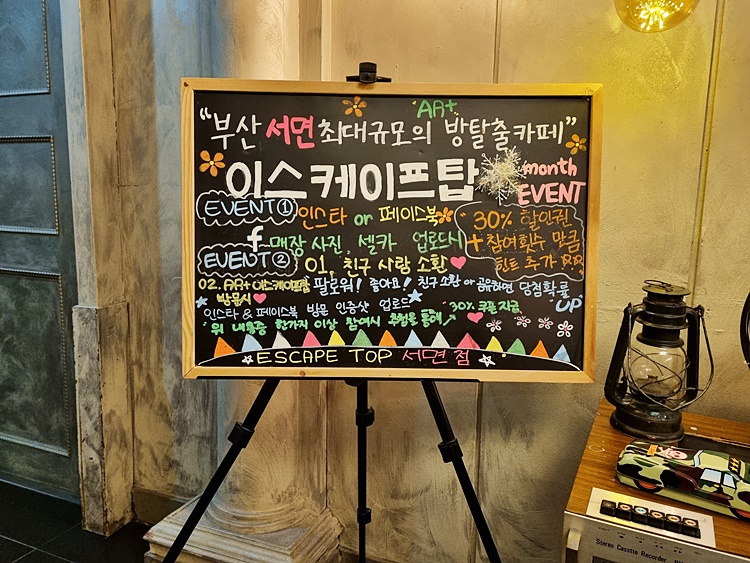 AR+
"부산 서면 최대규모의 방탈출카페"
이스케이프탑
month
EVENT
EVENT ① 인스타 or 페이스북
f 매장 사진, 셀카 업로드시
30% 할인권
+ 참여횟수 만큼
힌트 추가
EVENT ② 01. 친구 사람 소환
02. AR+ 이스케이프탑 팔로워! 좋아요! 친구 소환 or 공유하면 당첨확률 UP
방문시
인스타 & 페이스북 방문 인증샷 업로드
30% 쿠폰 지급
"위 내용중 한가지 이상 참여시 추첨을 통해
ESCAPE TOP 서면점
Stereo Cassette Recorder